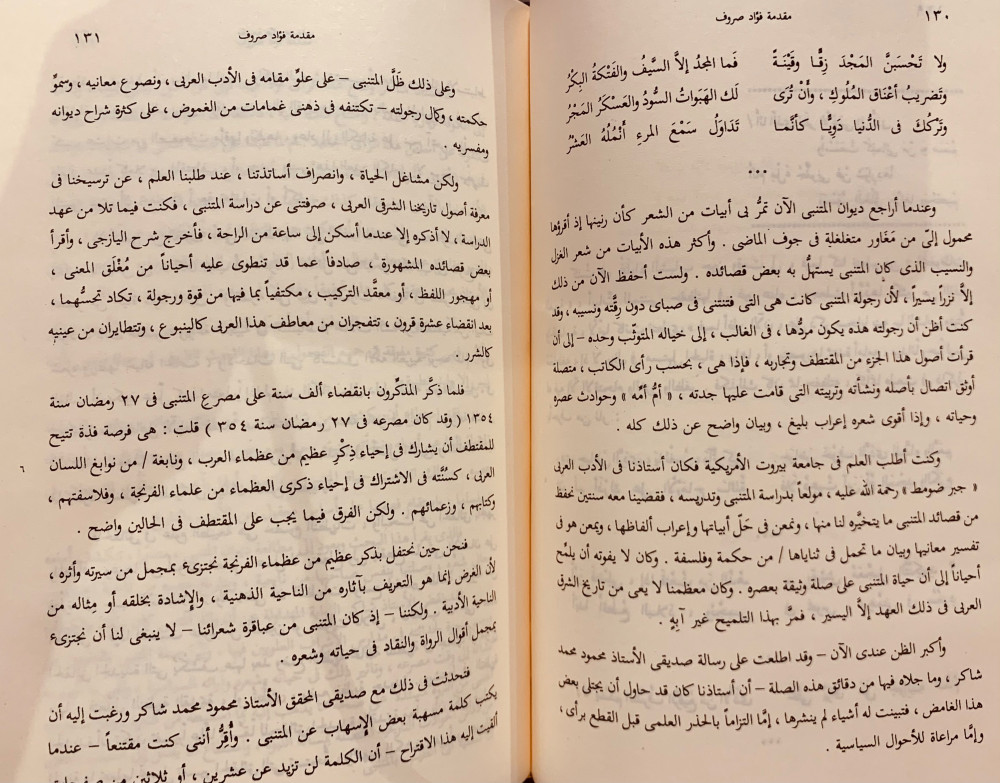 ١٣٠
مقدمة فؤاد صروف
ولا تَحْسَبَنَّ المَجْدَ زِقًّا وقَيْنَةً فَما المجدُ إلاَّ السَّيفُ والفَتْكةُ البِكْرُ
وتَضريبُ أعْنَاق المُلوكِ ، وأَنْ تُرَى لَك الهَبَواتُ السُّودُ والعَسْكَرُ المَجْرُ
وتَرْكُكَ فى الدُّنيا دَوِيًّا كأنَّما تَدَاوَلُ سَمْعَ المرءِ أَنْمُلُهُ العَشْرُ
•••
وعندما أراجع ديوان المتنبى الآن تمرُّ بى أبيات من الشعر كأن رنينها إذ أقرؤها
محمول إلىّ من مَغَاور متغلغلةٍ فى جوف الماضى . وأكثر هذه الأبيات من شعر الغزل
والنسيب الذى كان المتنبى يستهلُّ به بعض قصائده . ولست أحفظ الآن من ذلك
إلاَّ نزراً يسيراً ، لأن رجولة المتنبى كانت هى التى فتنتنى فى صباى دون رِقَّته ونسيبه ، وقد
كنت أظن أن رجولته هذه يكون مردُّها ، فى الغالب ، إلى خياله المتوثّب وحده – إلى أن
قرأت أصول هذا الجزء من المقتطف وتجاربه ، فإذا هى ، بحسب رأى الكاتب ، متصلة
أوثق اتصال بأصله ونشأته وتربيته التى قامت عليها جدته ، « أمُّ أمِّه » وحوادث عصره
وحياته ، وإذا أقوى شعره إعراب بليغ ، وبيان واضح عن ذلك كله .
وكنت أطلب العلم فى جامعة بيروت الأمريكية فكان أستاذنا فى الأدب العربى
« جبر ضومط » رحمة الله عليه ، مولعاً بدراسة المتنبى وتدريسه ، فقضينا معه سنتين نحفظ
من قصائد المتنبى ما يتخيَّره لنا منها ، ونمعن فى حَلّ أبياتها وإعراب ألفاظها ، ويمعن هو فى
تفسير معانيها وبيان ما تحمل فى ثناياها / من حكمة وفلسفة . وكان لا يفوته أن يلمْح
أحياناً إلى أن حياة المتنبى على صلة وثيقة بعصره . وكان معظمنا لا يعى من تاريخ الشرق
العربى فى ذلك العهد إلاَّ اليسير ، فمرَّ بهذا التلميح غير آبِهٍ .
وأكبر الظن عندى الآن – وقد اطلعت على رسالة صديقى الأستاذ محمود محمد
شاكر ، وما جلاه فيها من دقائق هذه الصلة – أن أستاذنا كان قد حاول أن يجتلى بعض
هذا الغامض ، فتبينت له أشياء لم ينشرها ، إمَّا التزاماً بالحذر العلمى قبل القطع برأى ،
وإمَّا مراعاة للأحوال السياسية .
مقدمة فؤاد صروف
١٣١
وعلى ذلك ظَلَّ المتنبى – على علوِّ مقامه فى الأدب العربى ، ونصوع معانيه ، وسموِّ
حكمته ، وكمال رجولته – تكتنفه فى ذهنى غمامات من الغموض ، على كثرة شراح ديوانه
ومفسريه .
ولكن مشاغل الحياة ، وانصراف أساتذتنا ، عند طلبنا العلم ، عن ترسيخنا فى
معرفة أصول تاريخنا الشرقى العربى ، صرفتنى عن دراسة المتنبى ، فكنت فيما تلا من عهد
الدراسة ، لا أذكره إلا عندما أسكن إلى ساعة من الراحة ، فأخرج شرح اليازجى ، وأقرأ
بعض قصائده المشهورة ، صادفاً عما قد تنطوى عليه أحياناً من مُغْلَق المعنى ،
أو مهجور اللفظ ، أو معقَّد التركيب ، مكتفياً بما فيها من قوة ورجولة ، تكاد تحسُّهما ،
بعد انقضاء عشرة قرون ، تتفجران من معاطف هذا العربى كالينبوع ، وتتطايران من عينيه
كالشرر .
فلما ذكَّر المذكِّرون بانقضاء ألف سنة على مصرع المتنبى فى ٢٧ رمضان سنة
١٣٥٤ ( وقد كان مصرعه فى ٢٧ رمضان سنة ٣٥٤ ) قلت : هى فرصة فذة تتيح
للمقتطف أن يشارك فى إحياء ذِكْرِ عظيم من عظماء العرب ، ونابغة / من نوابغ اللسان
٦
العربى ، كسُنَّته فى الاشتراك فى إحياء ذكرى العظماء من علماء الفرنجة ، وفلاسفتهم ،
وكتابهم ، وزعمائهم . ولكن الفرق فيما يجب على المقتطف فى الحالين واضح .
فنحن حين نحتفل بذكر عظيم من عظماء الفرنجة نجتزىء بمجمل من سيرته وأثره ،
لأن الغرض إنما هو التعريف بآثاره من الناحية الذهنية ، والإشادة بخلقه أو مِثاله من
الناحية الأدبية . ولكننا – إذ كان المتنبى من عباقرة شعرائنا – لا ينبغى لنا أن نجتزىء
بمجمل أقوال الرواة والنقاد فى حياته وشعره .
فتحدثت فى ذلك مع صديقى المحقق الأستاذ محمود محمد شاكر ورغبت إليه أن
يكتب كلمة مسهبة بعض الإسهاب عن المتنبى . وأُقِرُّ أننى كنت مقتنعاً – عندما
ألقيت إليه هذا الاقتراح – أن الكلمة لن تزيد عن عشرين ، أو ثلاثين من